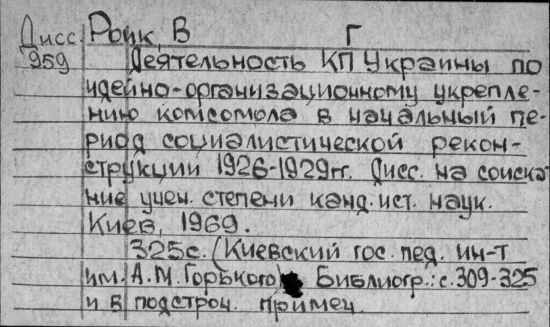 Дисс. Роик, В Г
959 Деятельность КП Украины по
идейно-организационному укрепле-
нию комсомола в начальный пе-
риод социалистической рекон-
струкции 1926-1929гг. Дисс. на соиска
ние учен. степени канд. ист. наук.
Киев, 1969.
325с. (Киевский гос. пед. ин-т
им. А.М. Горького) Библиогр.: с. 309-325
и в подстроч. примеч.